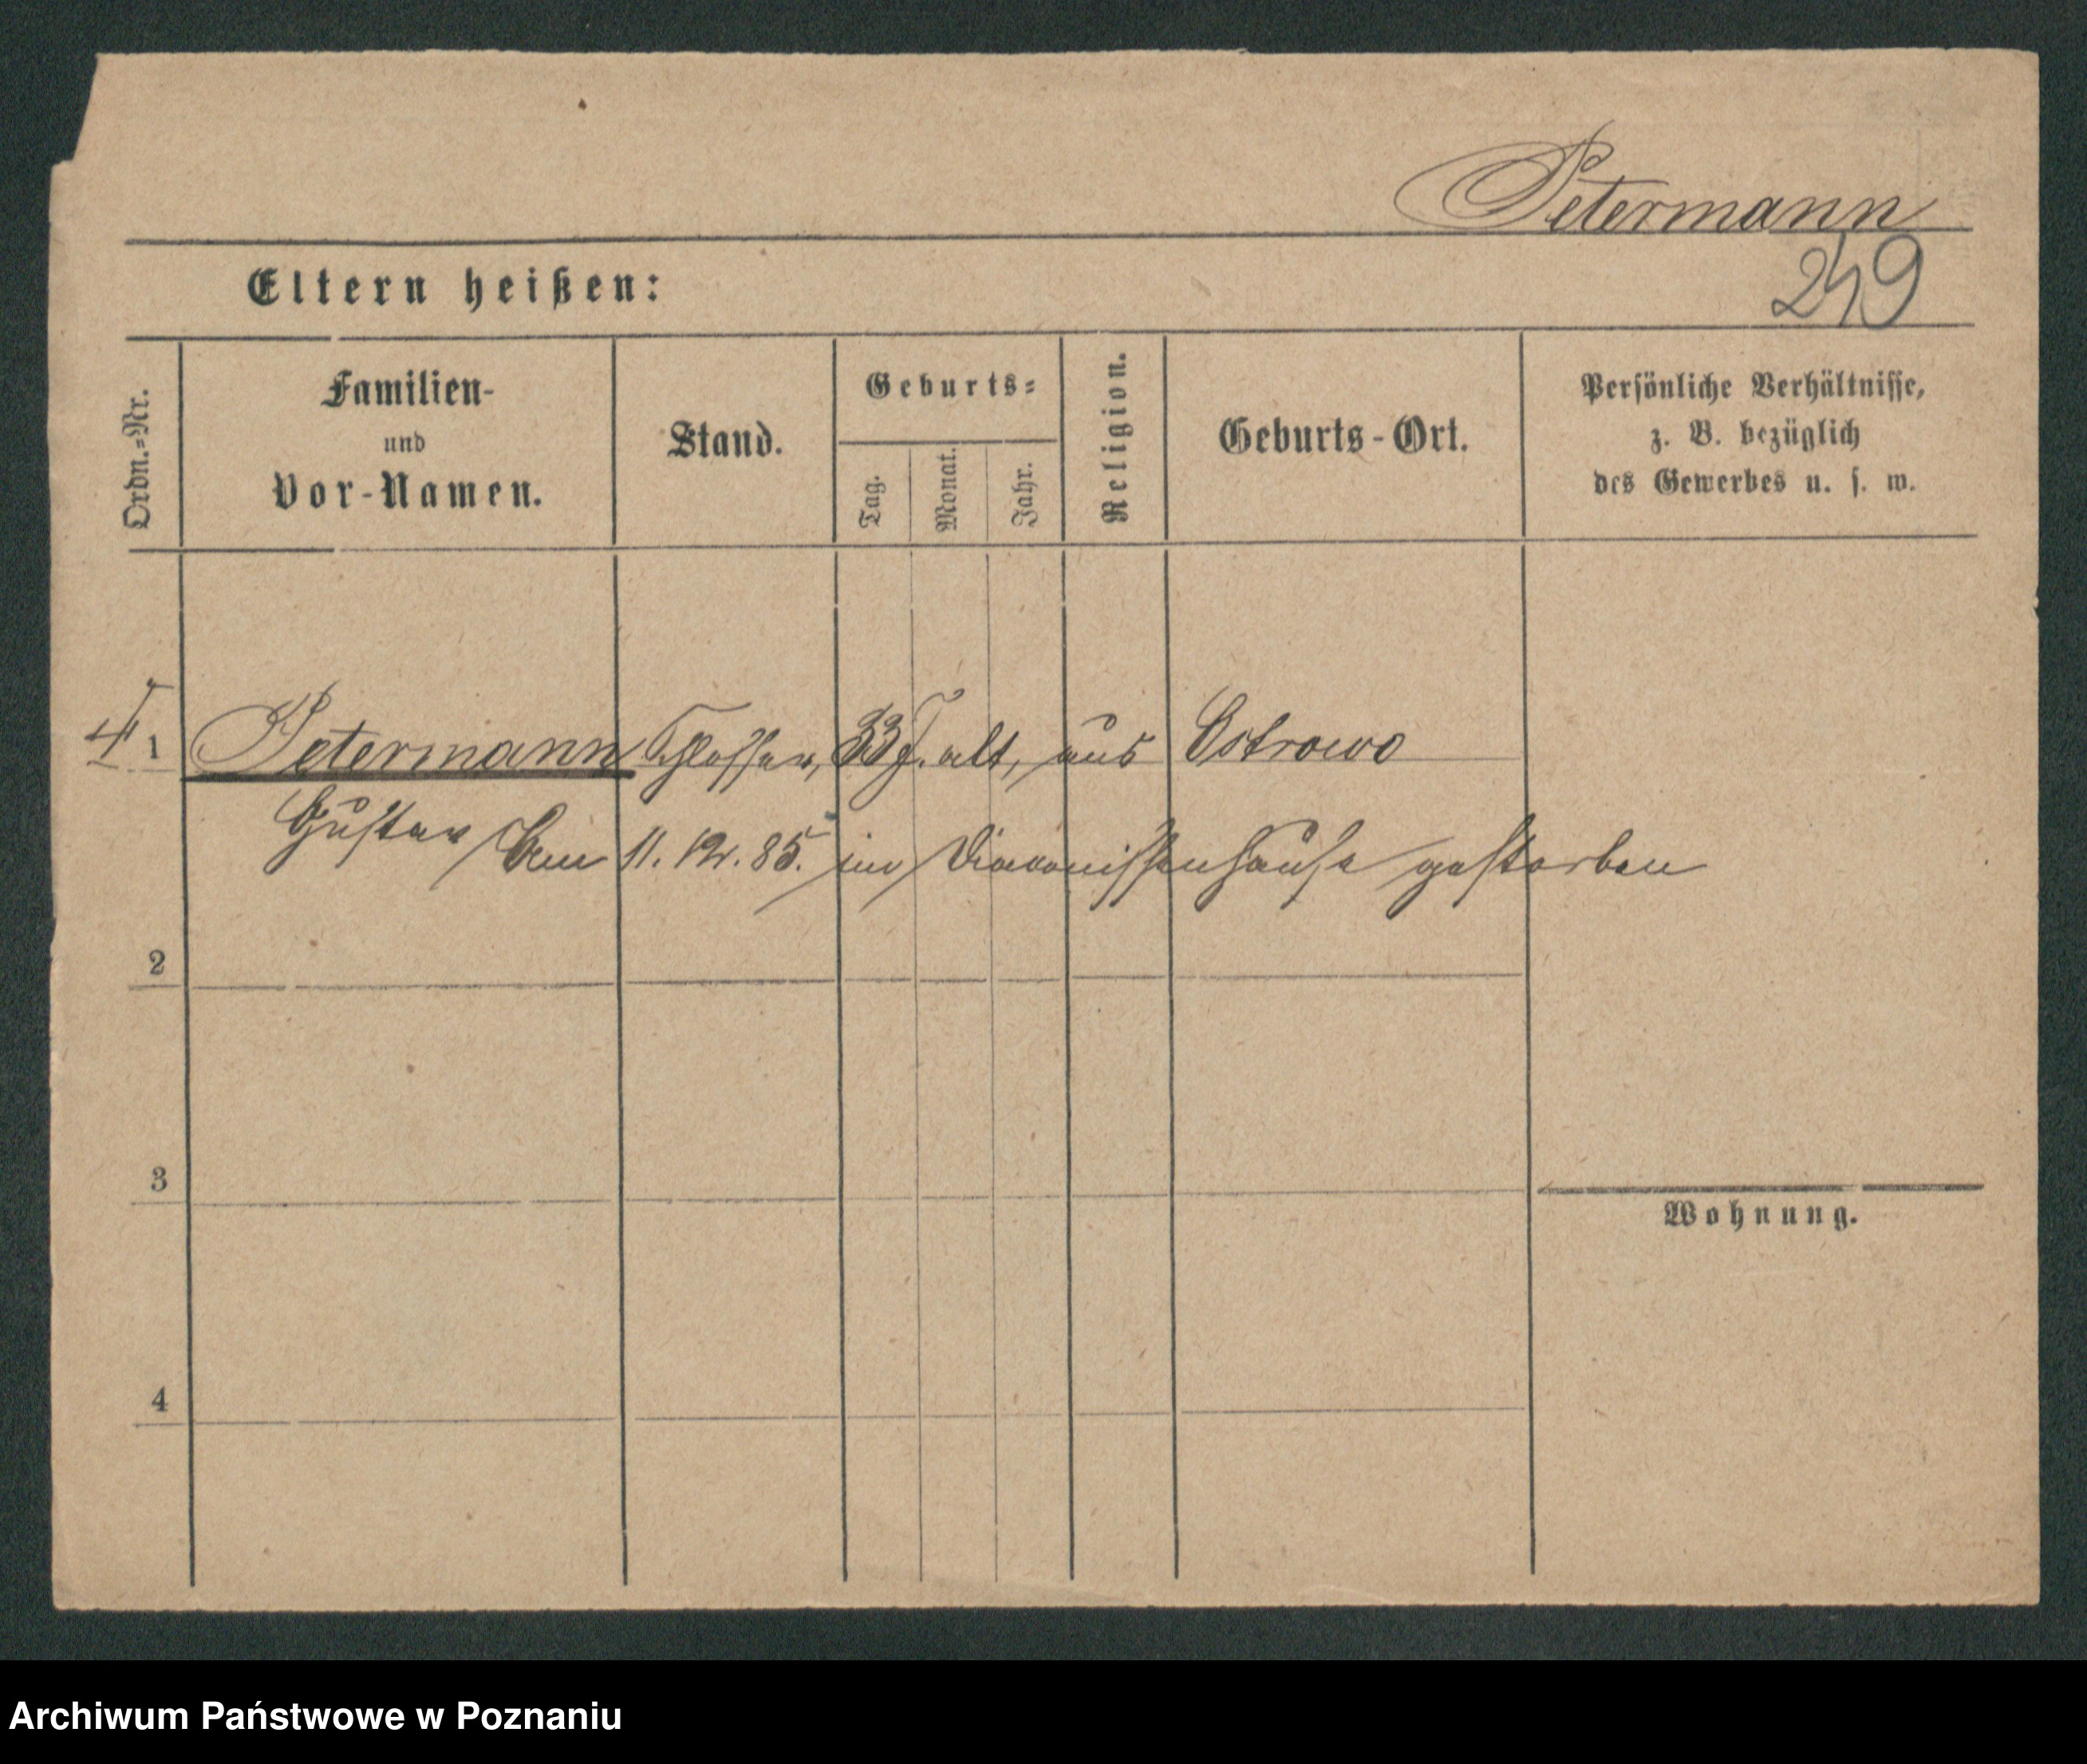 Petermann
249
Eltern heißen:
Ordn.-Nr.
Familien-
und
Vor-Namen.
Stand.
Geburts-
Tag.
Monat.
Jahr.
Religion.
Geburts-Ort.
Persönliche Verhältnisse,
z. B. bezüglich
des Gewerbes u. s. w.
1 Petermann Schlosser, 33 J. alt, aus Ostrowo
Gustav Am 11. 12. 85. im Diaconissenhause gestorben
2
3
Wohnung.
4
Archiwum Państwowe w Poznaniu